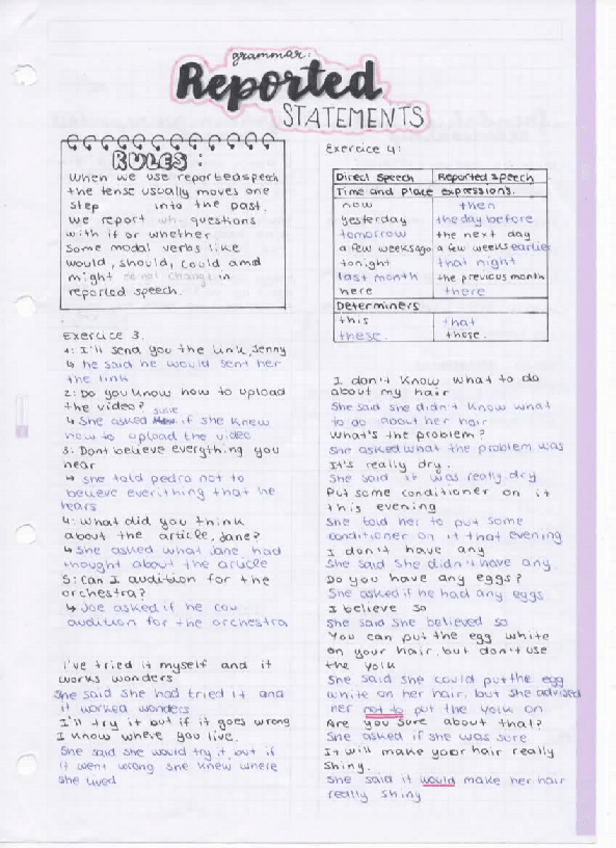 grammar:
Reported
STATEMENTS
RULES:
When we use reported speech
the tense usually moves one
step into the past.
We report wh- questions
with if or whether
Some modal verbs like
would, should, could and
might do not change in
reported speech.
Exercice 3.
1: I'll send you the link, Jenny
↳ he said he would sent her
the link
2: Do you know how to upload
the video?
↳ She asked if she knew
how to upload the video
3: Dont believe everything you
hear
↳ she told pedro not to
believe everithing that he
hears
4: What did you think
about the article, Jane?
↳ She asked what Jane had
thought about the article
5: Can I audition for the
orchestra?
↳ Joe asked if he cou
audition for the orchestra
I've tried it myself and it
works wonders
She said she had tried it and
it worked wonders
I'll try it but if it goes wrong
I know where you live.
She said she would try it, but if
it went wrong she knew where
she lived
Exercice 4:
Direct Speech Reported speech
Time and Place expressions.
now then
yesterday the day before
tomorrow the next day
a few weeks ago a few weeks earlier
tonight that night
last month the previous month
here there
Determiners
this that
these. those.
I don't know what to do
about my hair
She said she didn't know what
to do about her hair
What's the problem?
She asked what the problem was
It's really dry.
She said it was really dry
Put some conditioner on it
this evening
She told her to put some
conditioner on it that evening
I don't have any
She said she didn't have any
Do you have any eggs?
She asked if he had any eggs
I believe so
She said she believed so
You can put the egg white
on your hair, but don't use
the yolk
She said she could put the egg
white on her hair, but she advised
her not to put the yolk on
Are you sure about that?
She asked if she was sure
It will make your hair really
shiny.
She said it would make her hair
really shiny